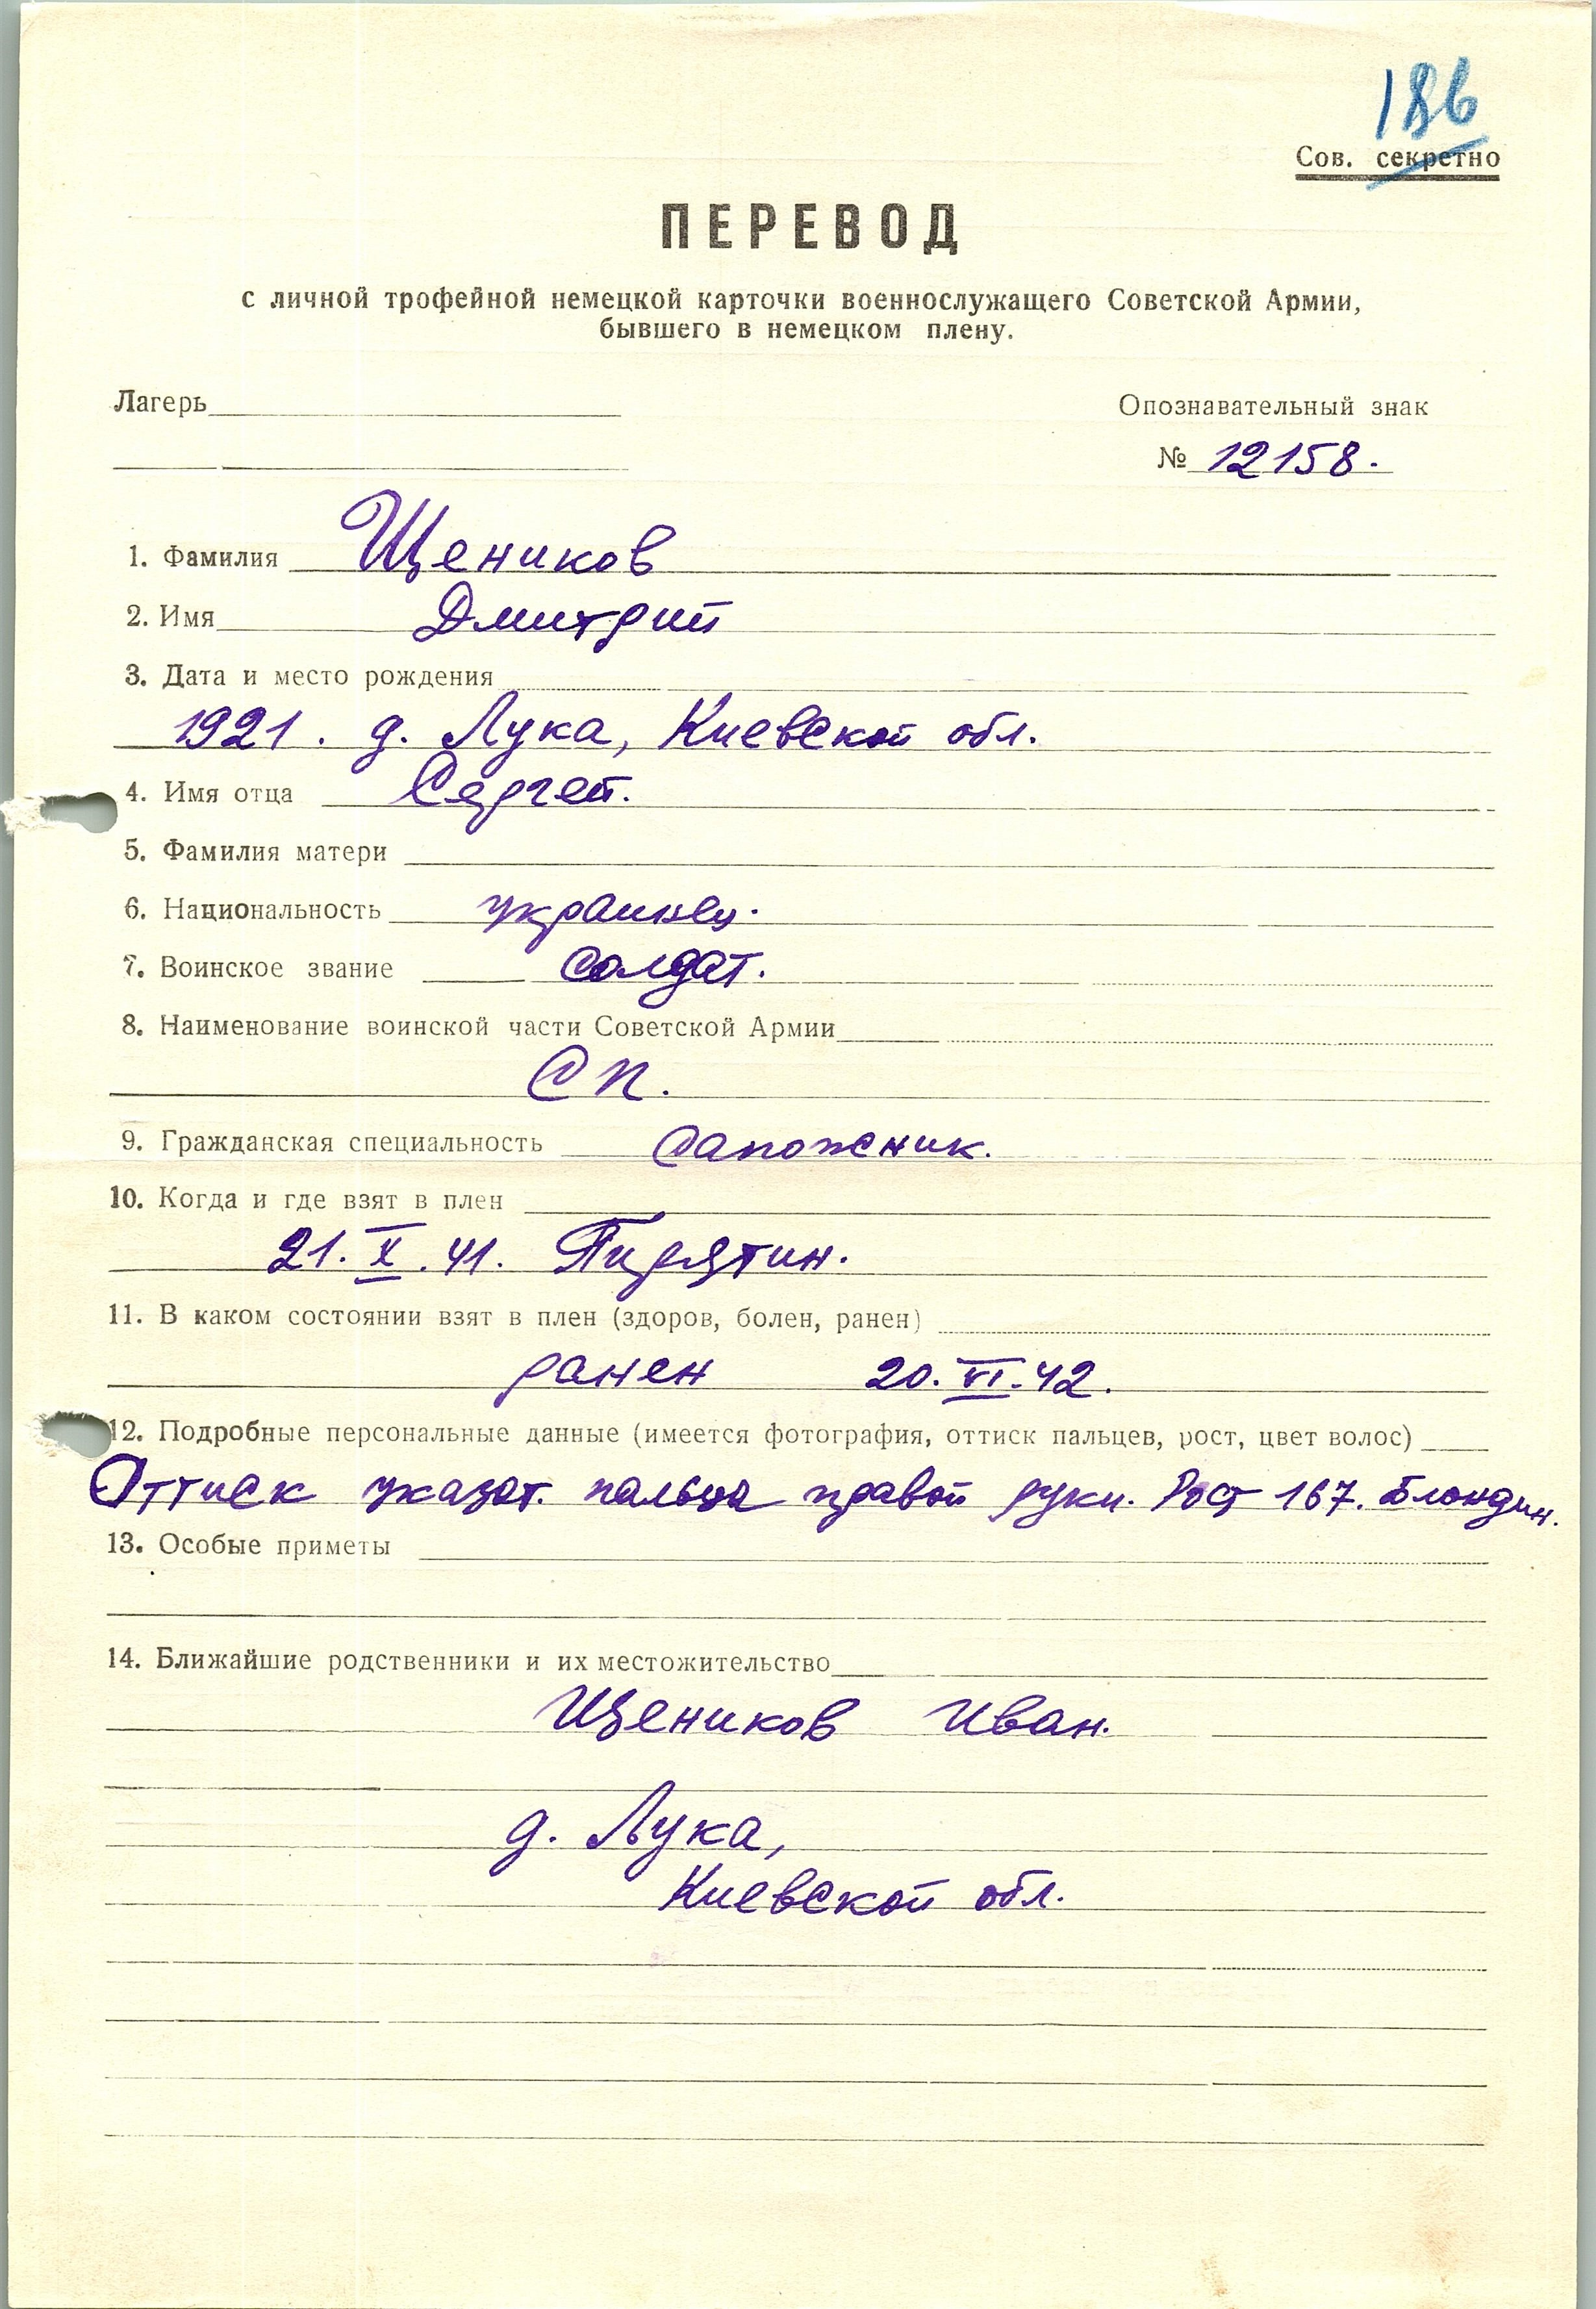 186
Сов. секретно
ПЕРЕВОД
с личной трофейной немецкой карточки военнослужащего Советской Армии,
бывшего в немецком плену.
Лагерь
Опознавательный знак
№ 12158.
1. Фамилия Щеников
2. Имя Дмитрий
3. Дата и место рождения
1921. д. Лука, Киевской обл.
4. Имя отца Сергей.
5. Фамилия матери
6. Национальность украинец.
7. Воинское звание солдат.
8. Наименование воинской части Советской Армии
СП.
9. Гражданская специальность сапожник.
10. Когда и где взят в плен
21. X. 41. Пирятин.
11. В каком состоянии взят в плен (здоров, болен, ранен)
ранен 20. VI. 42.
12. Подробные персональные данные (имеется фотография, оттиск пальцев, рост, цвет волос)
Оттиск указат. пальца правой руки. Рост 167. Блондин.
13. Особые приметы
14. Ближайшие родственники и их местожительство
Щеников Иван.
д. Лука,
Киевской обл.